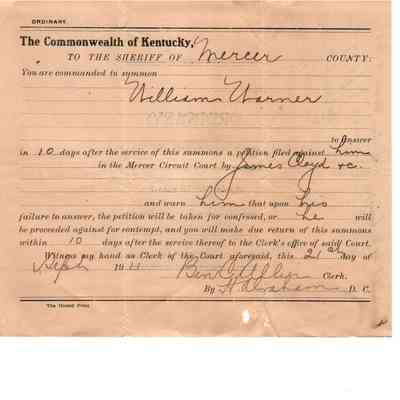 ORDINARY.
The Commonwealth of Kentucky,
TO THE SHERIFF OF Mercer COUNTY:
You are commanded to summon
William Warner
to answer
in 10 days after the service of this summons a petition filed against him
in the Mercer Circuit Court by James Cloyd &c.
and warn him that upon his
failure to answer, the petition will be taken for confessed, or he will
be proceeded against for contempt, and you will make due return of this summons
within 10 days after the service thereof to the Clerk's office of said Court.
Witness my hand as Clerk of the Court aforesaid, this 21st day of
Sept 1911 Ben C Allin Clerk.
By Abraham D. C.
The Herald Print